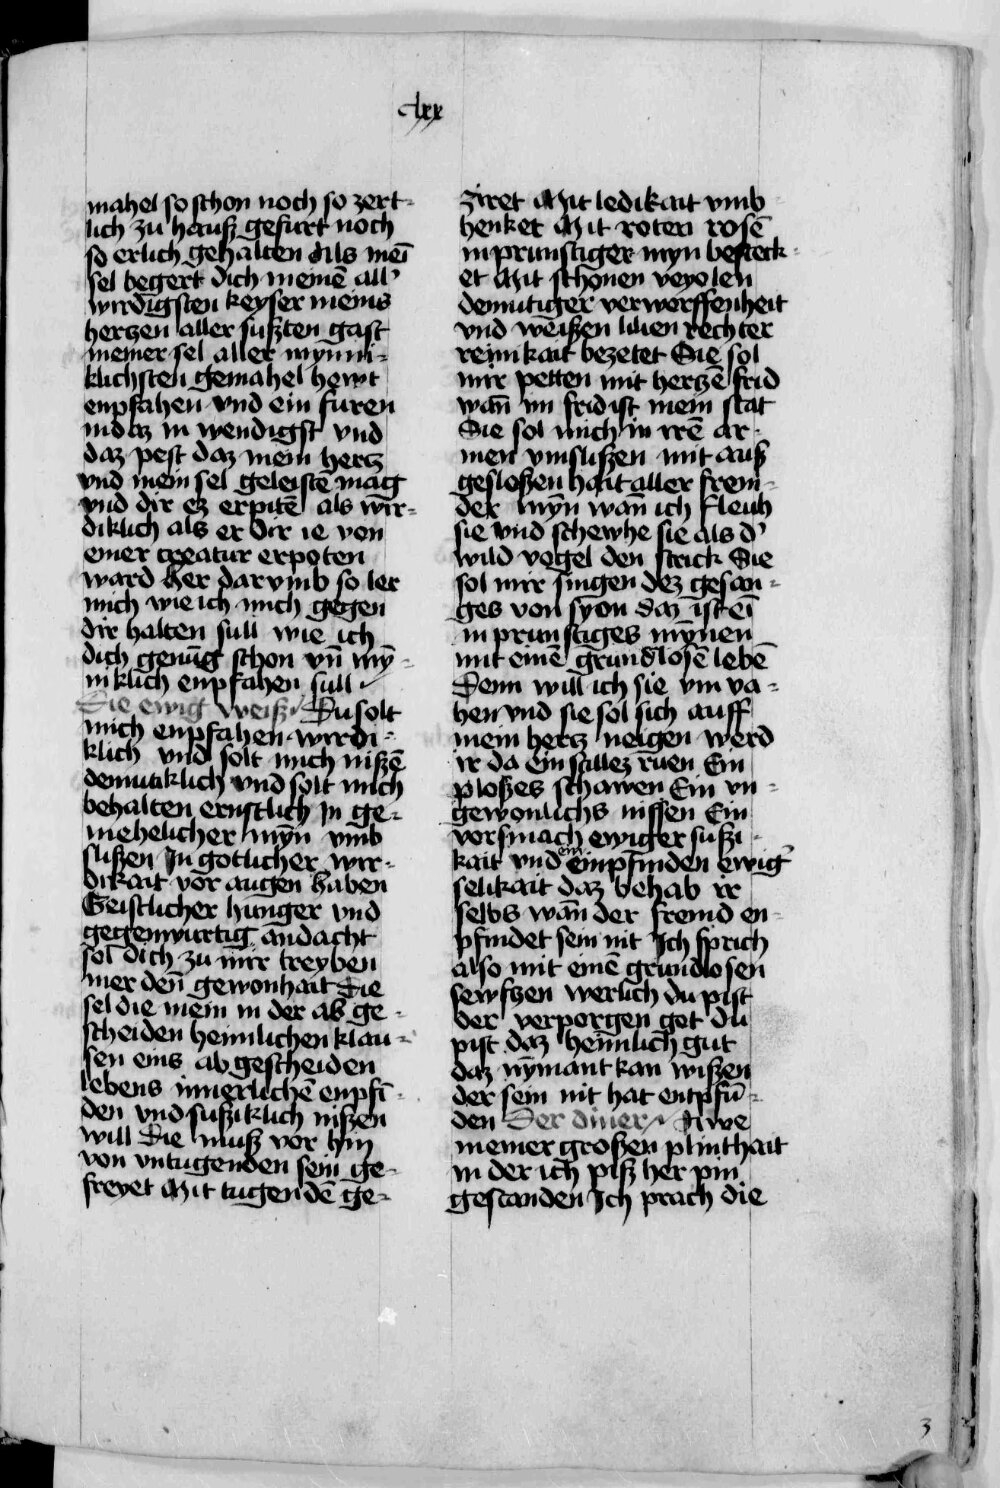 clxx
mahel so schon noch so zert-
lich zu hauß gefurt noch
so erlich gehalten Als meī
sel begert dich meinē all’
wirdigsten keyser meins
hertzen aller sußten gast
meiner sel aller mynni-
klichsten gemahel hewt
enpfahen vnd ein furen
in daz in wendigst vnd
daz pest daz mein hertz
vnd mein sel geleistē mag
vnd dir ez erpitē als wir-
diklich als er dir ie von
einer creatur erpoten
ward Her dar vmb so ler
mich wie ich mich gegen
dir halten sull wie ich
dich genūg schon vn̄ my̅-
niklich enpfahen sull
Die ewig weißt Du solt
mich enpfahen wirdi-
klich vnd solt mich nißē
demutiklich vnd solt mich
behalten ernstlich In ge-
mehelicher myn̄ vmb
slißen In gotlicher wir-
dikait vor augen haben
Geistlicher hunger vnd
gegenwurtig andacht
sol dich zu mir treyben
mer den̄ gewonhait Die
sel die mein in der ab ge-
scheiden heimlichen klau-
sen eins ab gescheiden
lebens innerlichē enpfī-
den vnd sußiklich nißen
will Die muß vor hin
von vntugenden sein ge-
freyet Mit tugendē ge-
ziret Mit ledikait vmb
henket Mit roten rosē
inprunstiger myn besteck-
et Mit schonen veyolen
demutiger verworffenheit
vnd weißen lilien rechter
reinikait bezetet Sie sol
mir petten mit hertzē frid
wan̄ im frid ist mein stat
Sie sol mich in irē ar-
men vmslißen mit auß
gesloßen hait aller frem-
der myn̄ wan̄ ich fleuh
sie vnd schewhe sie als d’
wild vogel den strick Sie
sol mir singen dez gesan-
ges von syon daz ist eī
inprunstiges my̅nen
mit einē grundlosē lebē
Denn will ich sie vm va-
hen vnd sie sol sich auff
mein hertz neigen werd
ir da ein stillez ruen Ein
ploßes schawen Ein vn-
gewonlichs nissen Ein
vorsmach ewiger sußi-
kait vnd ein enpfinden ewig’
selikait daz behab ir
selbs wan̄ der fremd en-
pfindet sein nit Ich sprich
also mit einē grundlosen
sewftzen werlich du pist
der verporgen got du
pist daz heimlich gut
daz ny̅mant kan wißen
der sein nit hat entpfū-
den Der diner Awe
meiner großen plinthait
in der ich piß her pin
gestanden Ich prach die
3